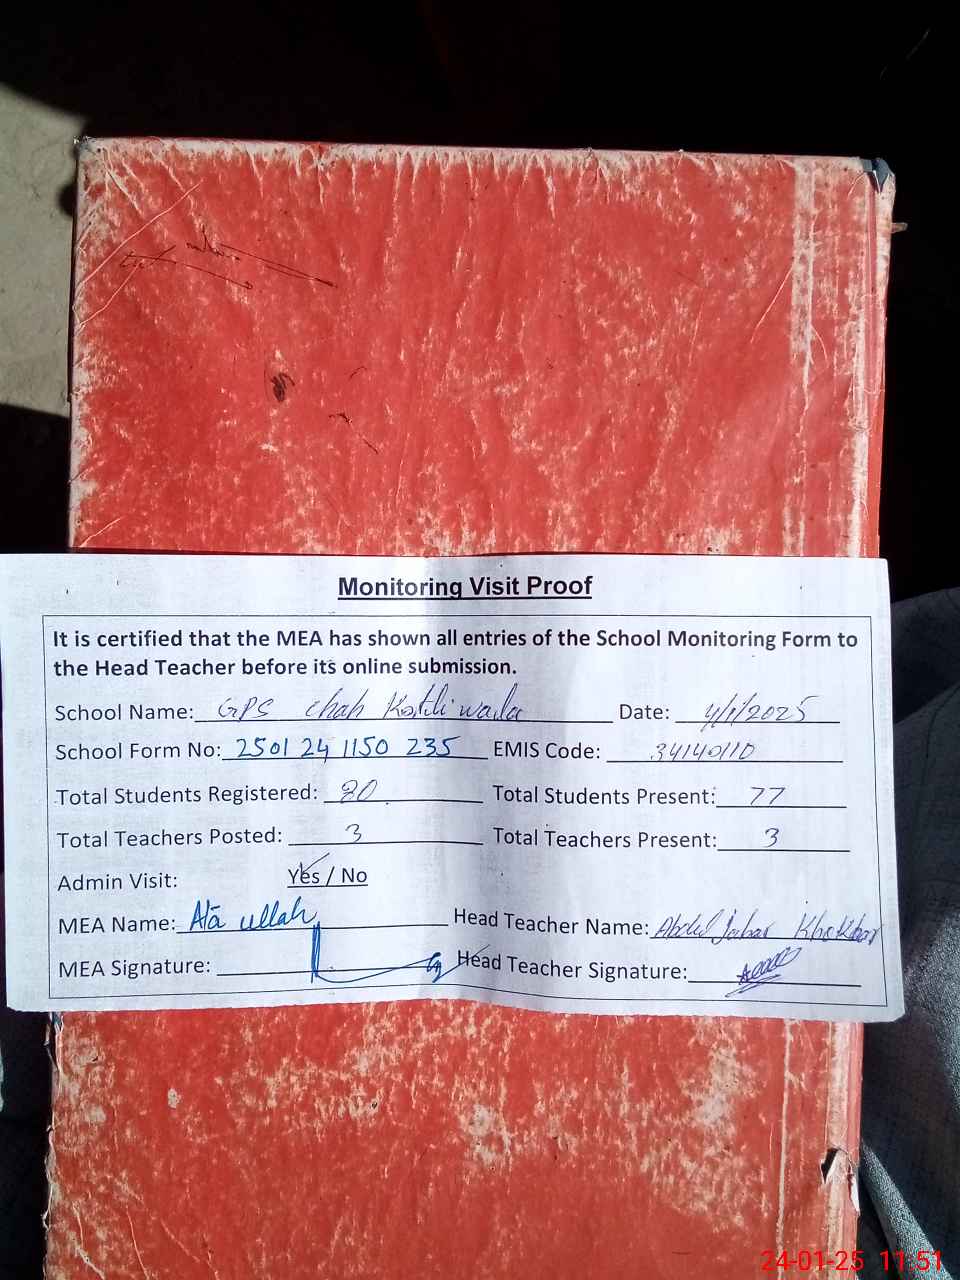 Monitoring Visit Proof
It is certified that the MEA has shown all entries of the School Monitoring Form to
the Head Teacher before its online submission.
School Name: GPS chah Kotliwala Date: 4/1/2025
School Form No: 2501 24 1150 235 EMIS Code: 34140110
Total Students Registered: 80 Total Students Present: 77
Total Teachers Posted: 3 Total Teachers Present: 3
Admin Visit: Yes / No
MEA Name: Atā ullah Head Teacher Name: Abdul Jabar Khokhar
MEA Signature: Head Teacher Signature:
24-01-25 11:51